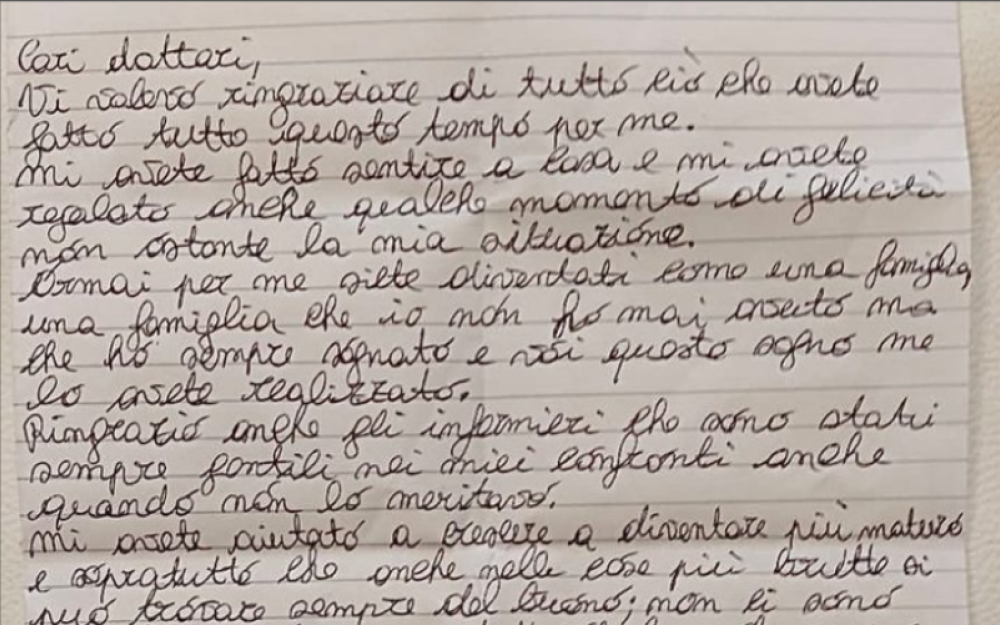 Cari dottori,
Vi volevo ringraziare di tutto ciò che avete
fatto tutto questo tempo per me.
Mi avete fatto sentire a casa e mi avete
regalato anche qualche momento di felicità
non ostante la mia situazione.
Ormai per me siete diventati come una famiglia,
una famiglia che io non ho mai avuto ma
che ho sempre sognato e voi questo sogno me
lo avete realizzato.
Ringrazio anche gli infermieri che sono stati
sempre gentili nei miei confronti anche
quando non lo meritavo.
Mi avete aiutato a crescere a diventare più maturo
e sopratutto che anche nelle cose più brutte si
può trovare sempre del buono; non ci sono